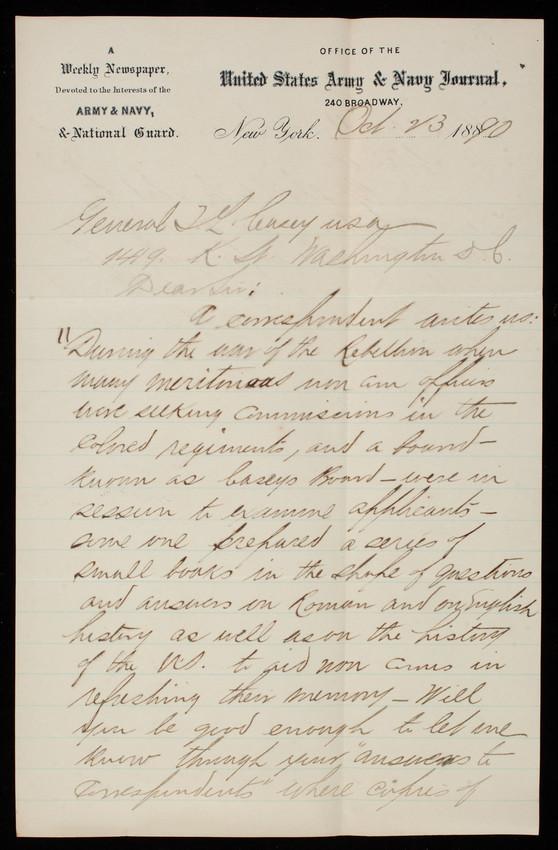 A
Weekly Newspaper,
Devoted to the Interests of the
ARMY & NAVY,
& National Guard.
OFFICE OF THE
United States Army & Navy Journal,
240 BROADWAY,
New York. Oct. 23 1890
General T L Casey USA
1419. K. St. Washington D.C.
Dear Sir:
A correspondent writes us:
"During the war of the Rebellion when
many meritorious non com officers
were seeking commissions in the
colored regiments, and a board –
known as Caseys Board – were in
session to examine applicants –
some one prepared a series of
small books in the shape of questions
and answers on Roman and on English
history as well as on the history
of the U.S. to aid non coms in
refreshing their memory – Will
you be good enough to let me
know through your "answers to
Correspondents" where copies of